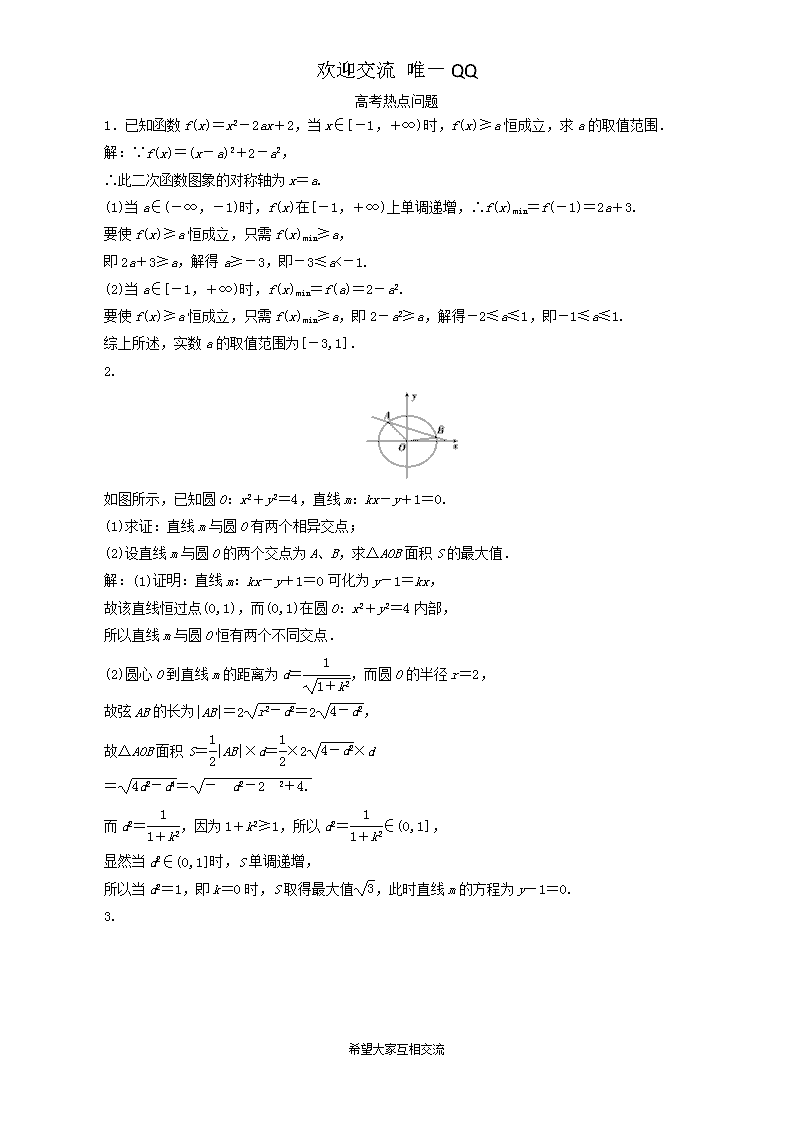 欢迎交流 唯一 QQ
高考热点问题
1．已知函数 f(x)＝x²－2ax＋2，当 x∈[－1，＋∞)时，f(x)≥a 恒成立，求 a 的取值范围．
解：∵f(x)＝(x－a)²＋2－a²，
∴此二次函数图象的对称轴为 x＝a.
(1)当 a∈(－∞，－1)时，f(x)在[－1，＋∞)上单调递增，∴f(x)min＝f(－1)＝2a＋3.
要使 f(x)≥a 恒成立，只需 f(x)min≥a，
即 2a＋3≥a，解得 a≥－3，即－3≤a<－1.
(2)当 a∈[－1，＋∞)时，f(x)min＝f(a)＝2－a².
要使 f(x)≥a 恒成立，只需 f(x)min≥a，即 2－a²≥a，解得－2≤a≤1，即－1≤a≤1.
综上所述，实数 a 的取值范围为[－3,1]．
2.
y
A
B
O
x
如图所示，已知圆 O：x²＋y²＝4，直线 m：kx－y＋1＝0.
(1)求证：直线 m 与圆 O 有两个相异交点；
(2)设直线 m 与圆 O 的两个交点为 A、B，求△AOB 面积 S 的最大值．
解：(1)证明：直线 m：kx－y＋1＝0 可化为 y－1＝kx，
故该直线恒过点(0,1)，而(0,1)在圆 O：x²＋y²＝4 内部，
所以直线 m 与圆 O 恒有两个不同交点．
(2)圆心 O 到直线 m 的距离为 d＝1/√(1＋k²)，而圆 O 的半径 r＝2，
故弦 AB 的长为|AB|＝2√(r²－d²)＝2√(4－d²)，
故△AOB 面积 S＝1/2|AB|×d＝1/2×2√(4－d²)×d
＝√(4d²－d⁴)＝√(－ d²－2 ²＋4.)
而 d²＝1/(1＋k²)，因为 1＋k²≥1，所以 d²＝1/(1＋k²)∈(0,1]，
显然当 d²∈(0,1]时，S 单调递增，
所以当 d²＝1，即 k＝0 时，S 取得最大值√3，此时直线 m 的方程为 y－1＝0.
3.
希望大家互相交流